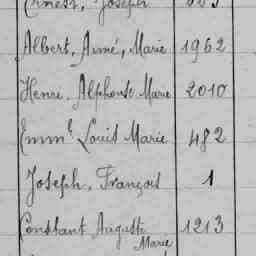 Ernest, Joseph
Albert, Aimé, Marie 1962
Henri Alphonse Marie 2010
Emm.l Louis Marie 482
Joseph, François 1
Constant Auguste 1213
Marie